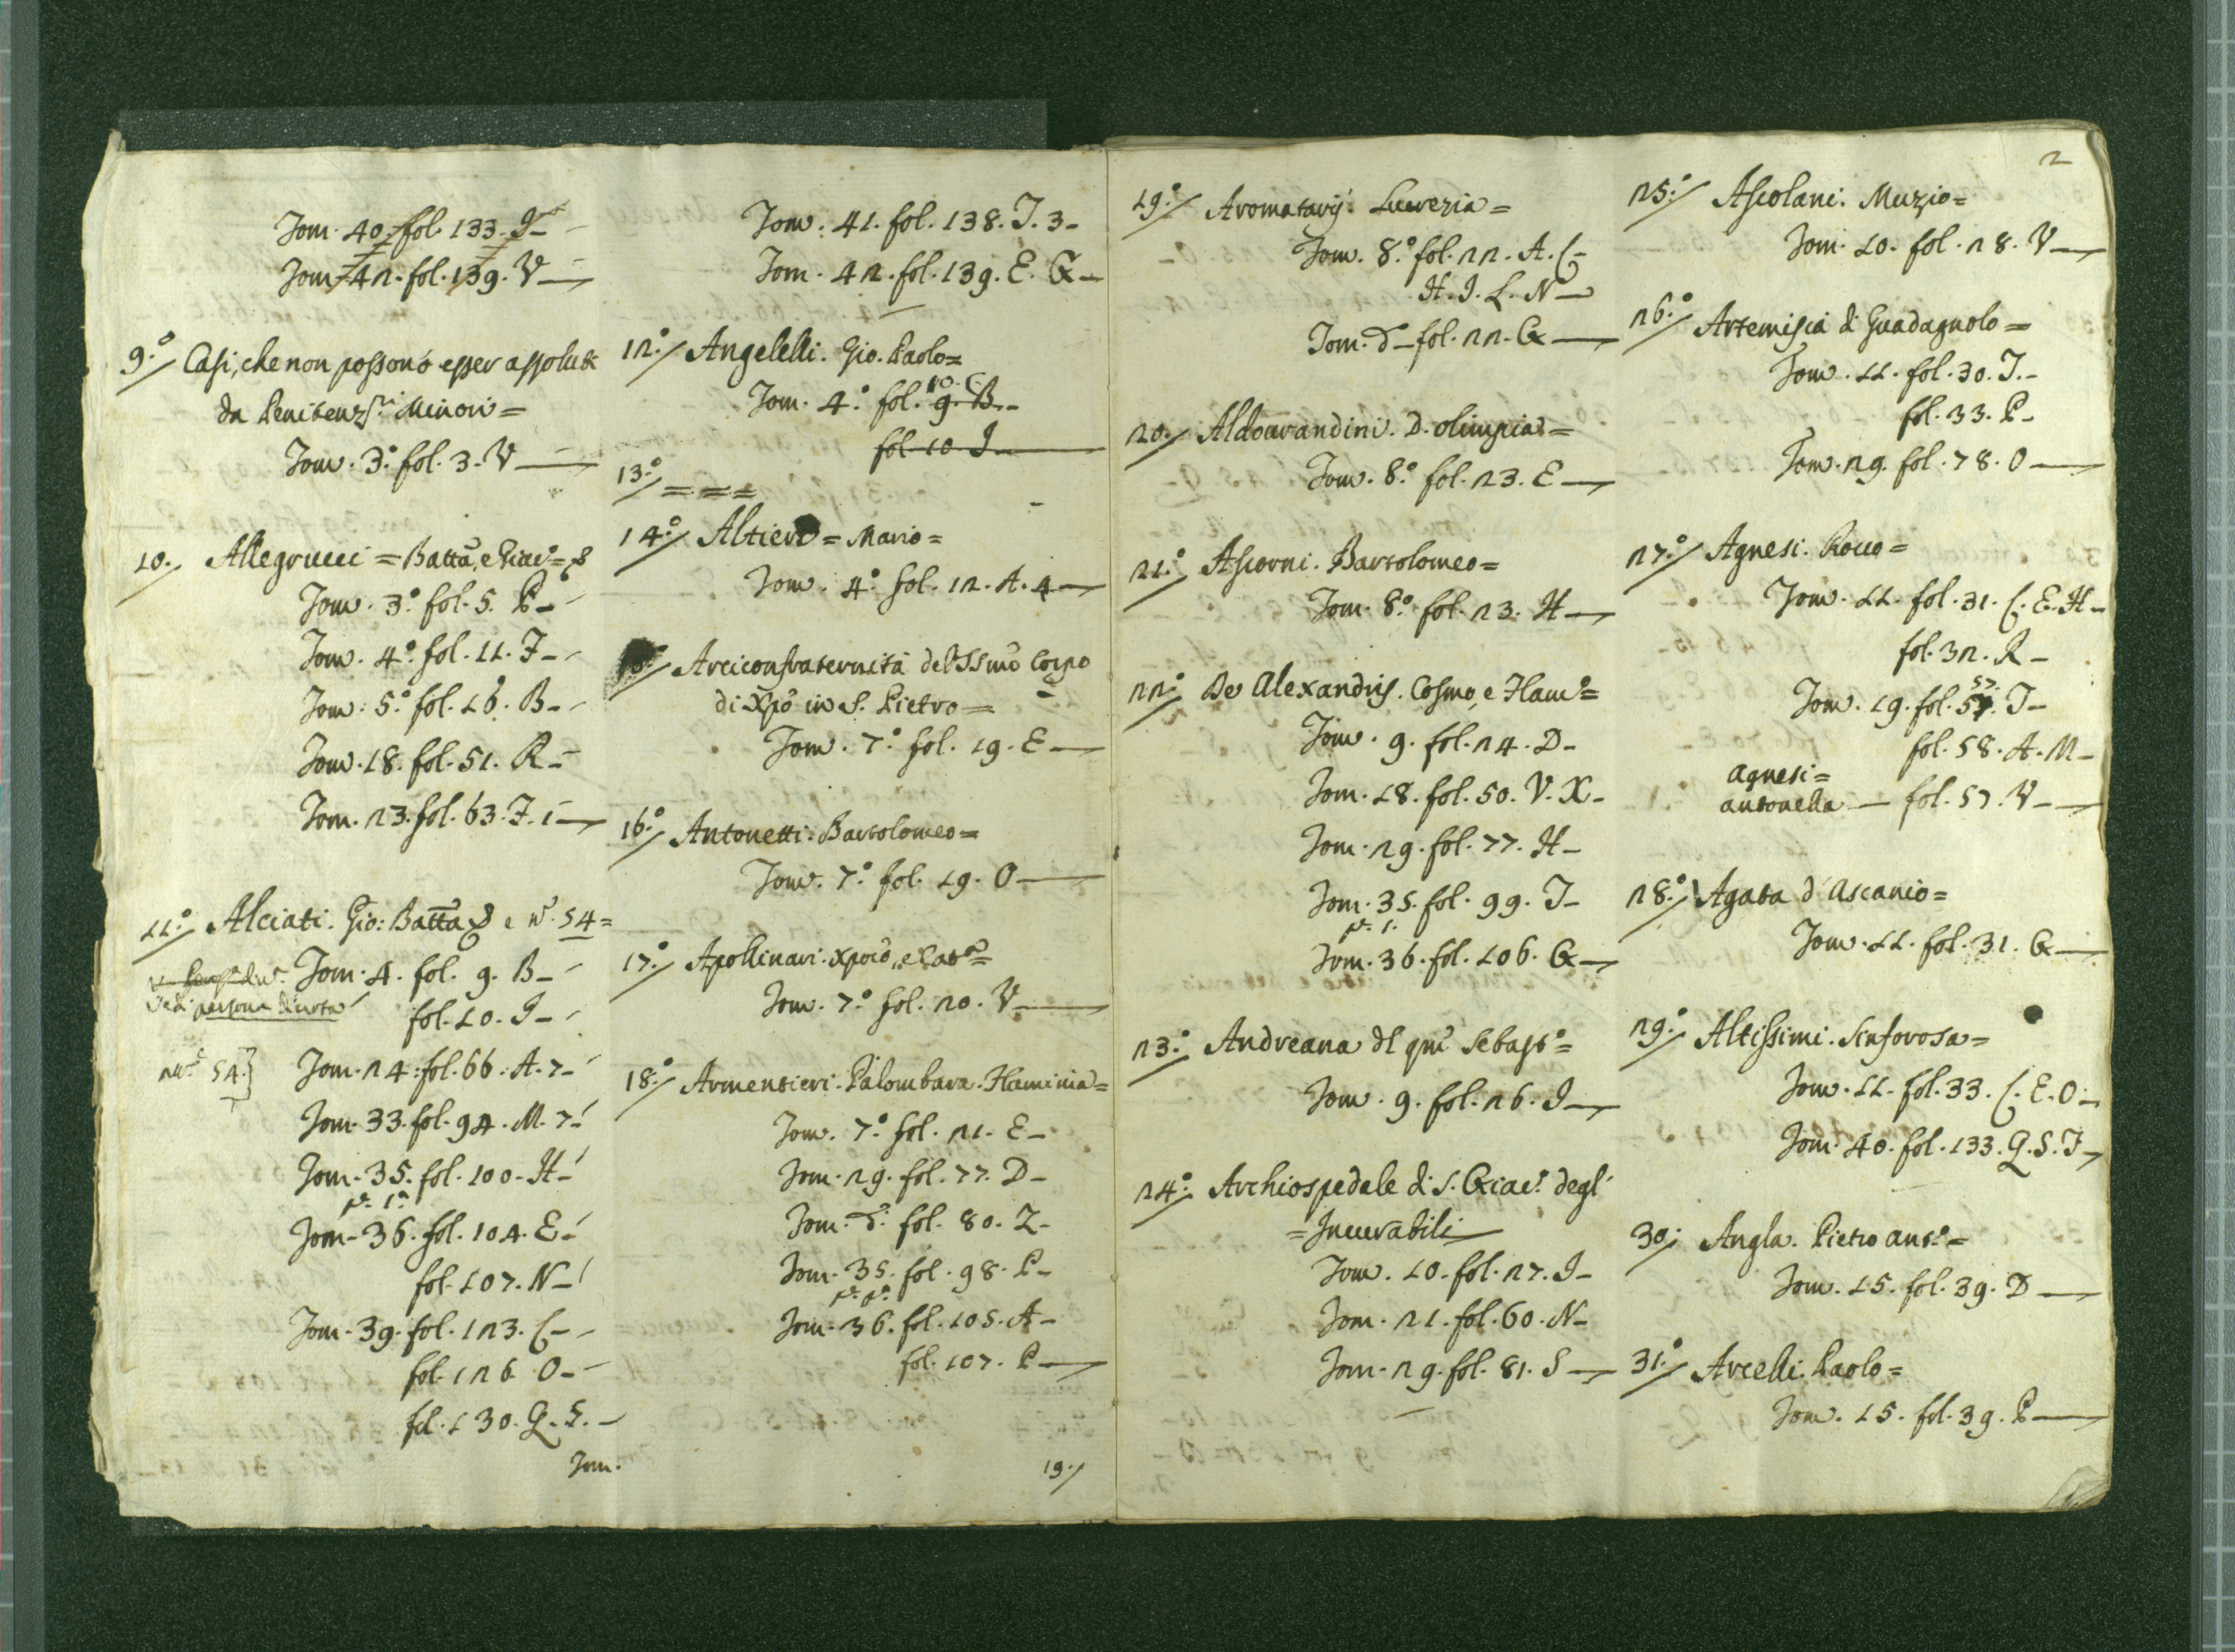 Tom. 40. fol. 133. I –
Tom. 42. fol. 139. V –
9.° Casi, che non possono esser assoluti
da Penitenz.ri Minori =
Tom. 3.° fol. 3. V –
10. Allegrucci = Batta, e Giac.° =
Tom. 3.° fol. 5. P –
Tom. 4.° fol. 11. T –
Tom. 5.° fol. 16. B –
Tom. 18. fol. 51. R –
Tom. 23. fol. 63. T. 1 –
11.° Alciati. Gio: Batta e n.° 54 =
Tom. 4. fol. 9. B –
Vedi persona divota
fol. 10. I –
n.° 54.} Tom. 24. fol. 66. A. 7 –
Tom. 33. fol. 94. M. 7 –
Tom. 35. fol. 100. H –
p. 1.a
Tom. 36. fol. 104. E –
fol. 107. N –
Tom. 39. fol. 123. C –
fol. 126. O –
fol. 130. Q. S. –
Tom.
Tom. 41. fol. 138. T. 3 –
Tom. 42. fol. 139. E. G –
12.° Angelelli. Gio. Paolo =
10. C.
Tom. 4.° fol. 9. B. –
fol. 10. I –
13.° = = =
14.° Altieri = Mario =
Tom. 4.° fol. 12. A. 4 –
Arciconfraternità del SSmo Corpo
di Xpo in S. Pietro =
Tom. 7.° fol. 19. E –
16.° Antonetti. Bartolomeo =
Tom. 7.° fol. 19. O –
17.° Apollinari. Xporo, e
Tom. 7.° fol. 20. V –
18.° Armentieri. Palombara. Flaminia =
Tom. 7.° fol. 21. E –
Tom. 29. fol. 77. D –
Tom. d.° fol. 80. Z –
Tom. 35. fol. 98. P –
Tom. 36. fol. 105. A –
fol. 107. P –
19./
2
19.° Aromatarij. Lucrezia =
Tom. 8.° fol. 22. A. C –
H. I. L. N –
Tom. d – fol. 22. G –
20. Aldourandini. D. olimpia =
Tom. 8.° fol. 23. E –
21.° Ascorni. Bartolomeo =
Tom. 8.° fol. 23. H –
22.° De Alexandris. Cosmo, e Flam.° =
Tom. 9. fol. 24. D –
Tom. 18. fol. 50. V. X –
Tom. 29. fol. 77. H –
Tom. 35. fol. 99. T –
p. 1.
Tom. 36. fol. 106. G –
23.° Andreana dl qm Sebast.° =
Tom. 9. fol. 26. I –
24.° Archiospedale di S. Giac.° degl'
= Incurabili
Tom. 10. fol. 27. I –
Tom. 21. fol. 60. N –
Tom. 29. fol. 81. S –
25.° Ascolani. Muzio =
Tom. 10. fol. 28. V –
26.° Artemisia di Guadagnolo =
Tom. 11. fol. 30. T. –
fol. 33. P –
Tom. 29. fol. 78. O –
27.° Agnesi. Rocco =
Tom. 11. fol. 31. C. E. H –
fol. 32. R –
57.
Tom. 19. fol. 57. T –
fol. 58. A. M –
Agnesi =
antonella – fol. 57. V –
28.° Agata d'Ascanio =
Tom. 11. fol. 31. G –
29.° Altissimi. Sinforosa =
Tom. 11. fol. 33. C. E. O –
Tom. 40. fol. 133. Q. S. T –
30. Angla. Pietro ant.° =
Tom. 15. fol. 39. D –
31.° Arcelli. Paolo =
Tom. 15. fol. 39. P –